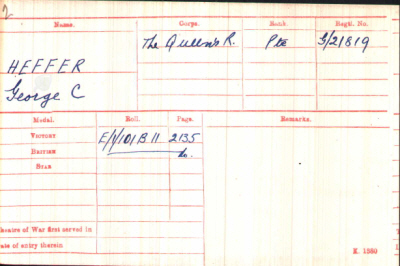 2
Name. Corps. Rank. Regtl. No.
The Queen's R. Pte G/21819
HEFFER
George C
Medal. Roll. Page. Remarks.
Victory E/1/101B11 2135
British do.
Star
Theatre of War first served in
Date of entry therein
K. 1380